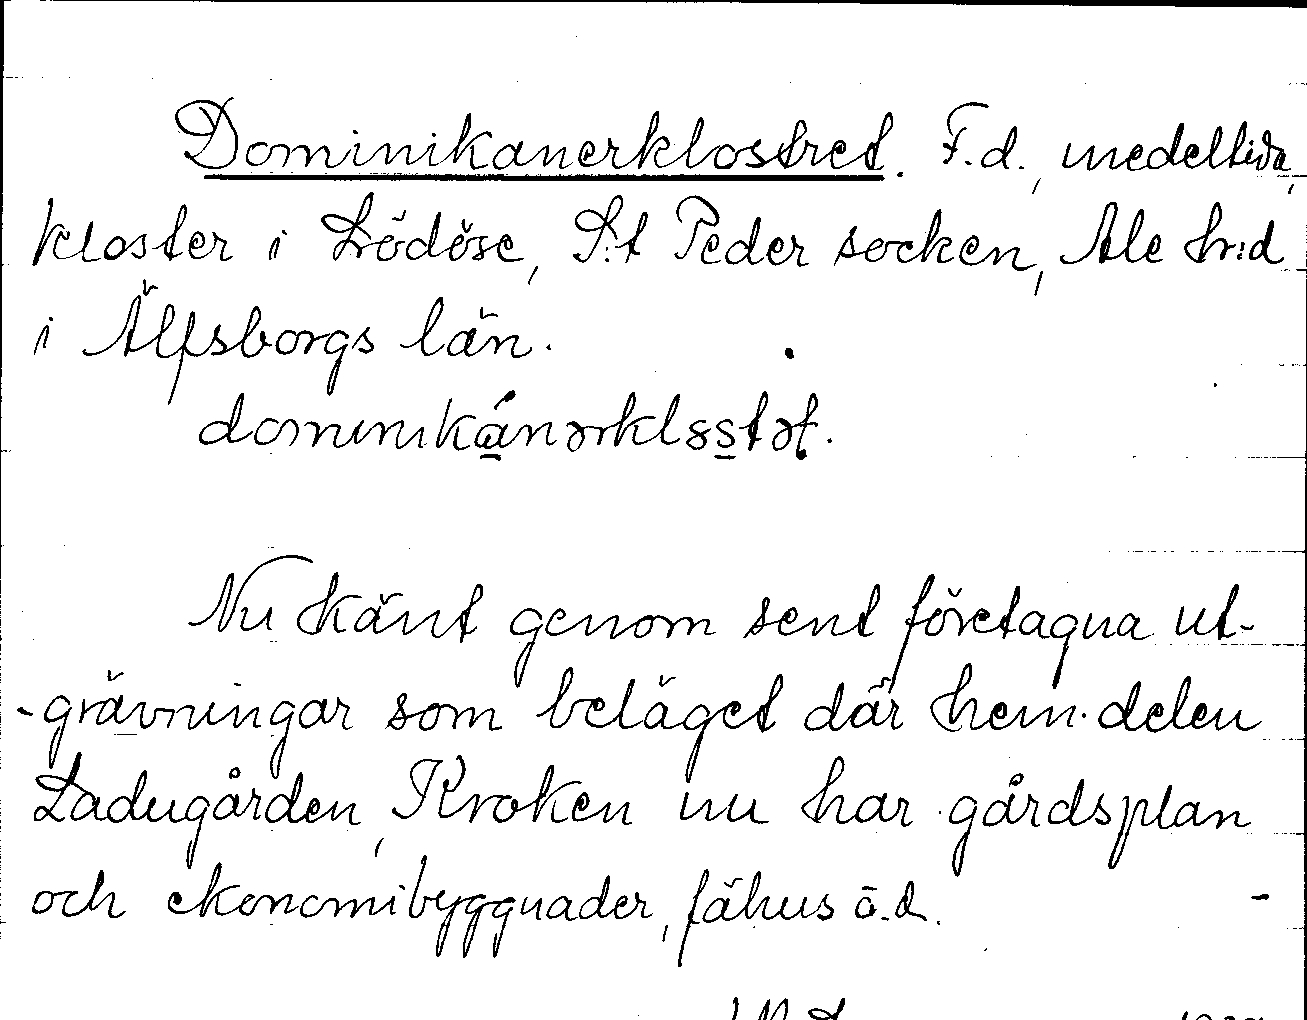 Dominikanerklostret. F.d., medeltida,
kloster i Lödöse, S:t Peder socken, Ale hr:d
i Älfsborgs län.
Nu känt genom sent företagna ut-
-grävningar som beläget där hem. delen
Ladugården, Kroken nu har gårdsplan
och ekonomibyggnader, fähus o.d. -